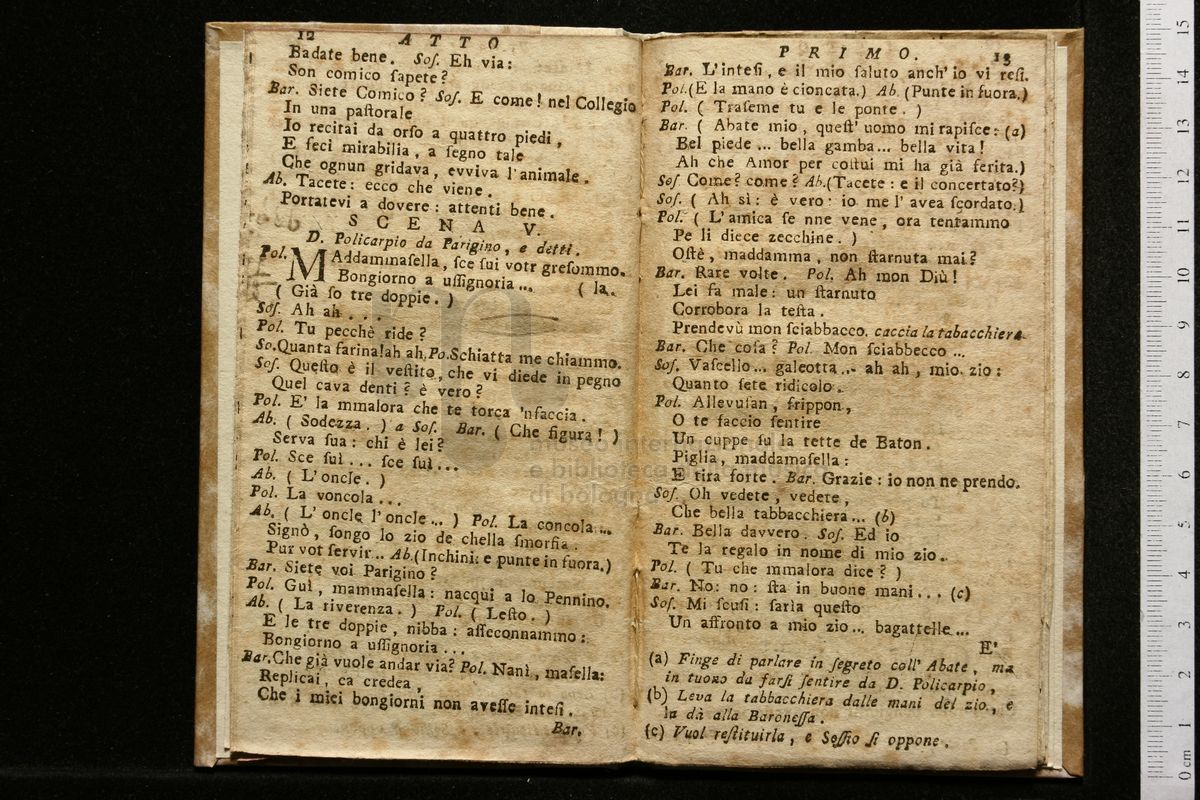 12 ATTO
Badate bene. Soſ. Eh via:
Son comico ſapete?
Bar. Siete Comico? Soſ. E come! nel Collegio
In una paſtorale
Io recitai da orſo a quattro piedi,
E feci mirabilia, a ſegno tale
Che ognun gridava, evviva l'animale.
Ab. Tacete: ecco che viene.
Portatevi a dovere: attenti bene.
SCENA V.
D. Policarpio da Parigino, e detti.
Pol. MAddammaſella, ſce ſui votr greſommo.
Bongiorno a uſſignoria... (la.
( Già ſo tre doppie. )
Soſ. Ah ah...
Pol. Tu pecchè ride?
So. Quanta farina! ah ah, Po. Schiatta me chiammo.
Soſ. Queſto è il veſtito, che vi diede in pegno
Quel cava denti? è vero?
Pol. E' la mmalora che te torca 'nfaccia.
Ab. ( Sodezza. ) a Soſ. Bar. ( Che figura! )
Serva ſua: chi è lei?
Pol. Sce ſuì... ſce ſuì...
Ab. ( L'oncle. )
Pol. La voncola...
Ab. ( L'oncle l'oncle... ) Pol. La concola...
Signò, ſongo lo zio de chella ſmorfia.
Pur vot ſervir.. Ab. (Inchini: e punte in fuora.)
Bar. Siete voi Parigino?
Pol. Guì, mammaſella: nacquì a lo Pennino.
Ab. ( La riverenza. ) Pol. ( Leſto. )
E le tre doppie, nibba: aſſeconnammo:
Bongiorno a uſſignoria...
Bar. Che già vuole andar via? Pol. Nanì, maſella:
Replicai, ca credea,
Che i miei bongiorni non aveſſe inteſi.
Bar.
PRIMO. 13
Bar. L'inteſi, e il mio ſaluto anch'io vi reſi.
Pol. (E la mano è cioncata.) Ab. (Punte in fuora.)
Pol. ( Traſeme tu e le ponte. )
Bar. ( Abate mio, queſt'uomo mi rapiſce: (a)
Bel piede... bella gamba... bella vita!
Ah che Amor per coſtui mi ha già ferita.)
Soſ. Come? come? Ab. (Tacete: e il concertato?)
Soſ. ( Ah sì: è vero: io me l'avea ſcordato.)
Pol. ( L'amica ſe nne vene, ora tentammo
Pe li diece zecchine. )
Oſtè, maddamma, non ſtarnuta mai?
Bar. Rare volte. Pol. Ah mon Diù!
Lei fa male: un ſtarnuto
Corrobora la teſta.
Prendevù mon ſciabbacco. caccia la tabacchiera
Bar. Che coſa? Pol. Mon ſciabbecco...
Soſ. Vaſcello... galeotta... ah ah, mio zio:
Quanto ſete ridicolo.
Pol. Allevuſan, frippon,
O te faccio ſentire
Un cuppe ſu la tette de Baton.
Piglia, maddamaſella:
E tira forte. Bar. Grazie: io non ne prendo.
Soſ. Oh vedete, vedete,
Che bella tabbacchiera... (b)
Bar. Bella davvero. Soſ. Ed io
Te la regalo in nome di mio zio..
Pol. ( Tu che mmalora dice? )
Bar. No: no: ſta in buone mani... (c)
Soſ. Mi ſcuſi: ſarìa queſto
Un affronto a mio zio... bagattelle...
E'
(a) Finge di parlare in ſegreto coll'Abate, ma
in tuono da farſi ſentire da D. Policarpio,
(b) Leva la tabbacchiera dalle mani del zio, e
la dà alla Baroneſſa.
(c) Vuol reſtituirla, e Soſſio ſi oppone.
di bologna
0 cm 1 2 3 4 5 6 7 8 9 10 11 12 13 14 15